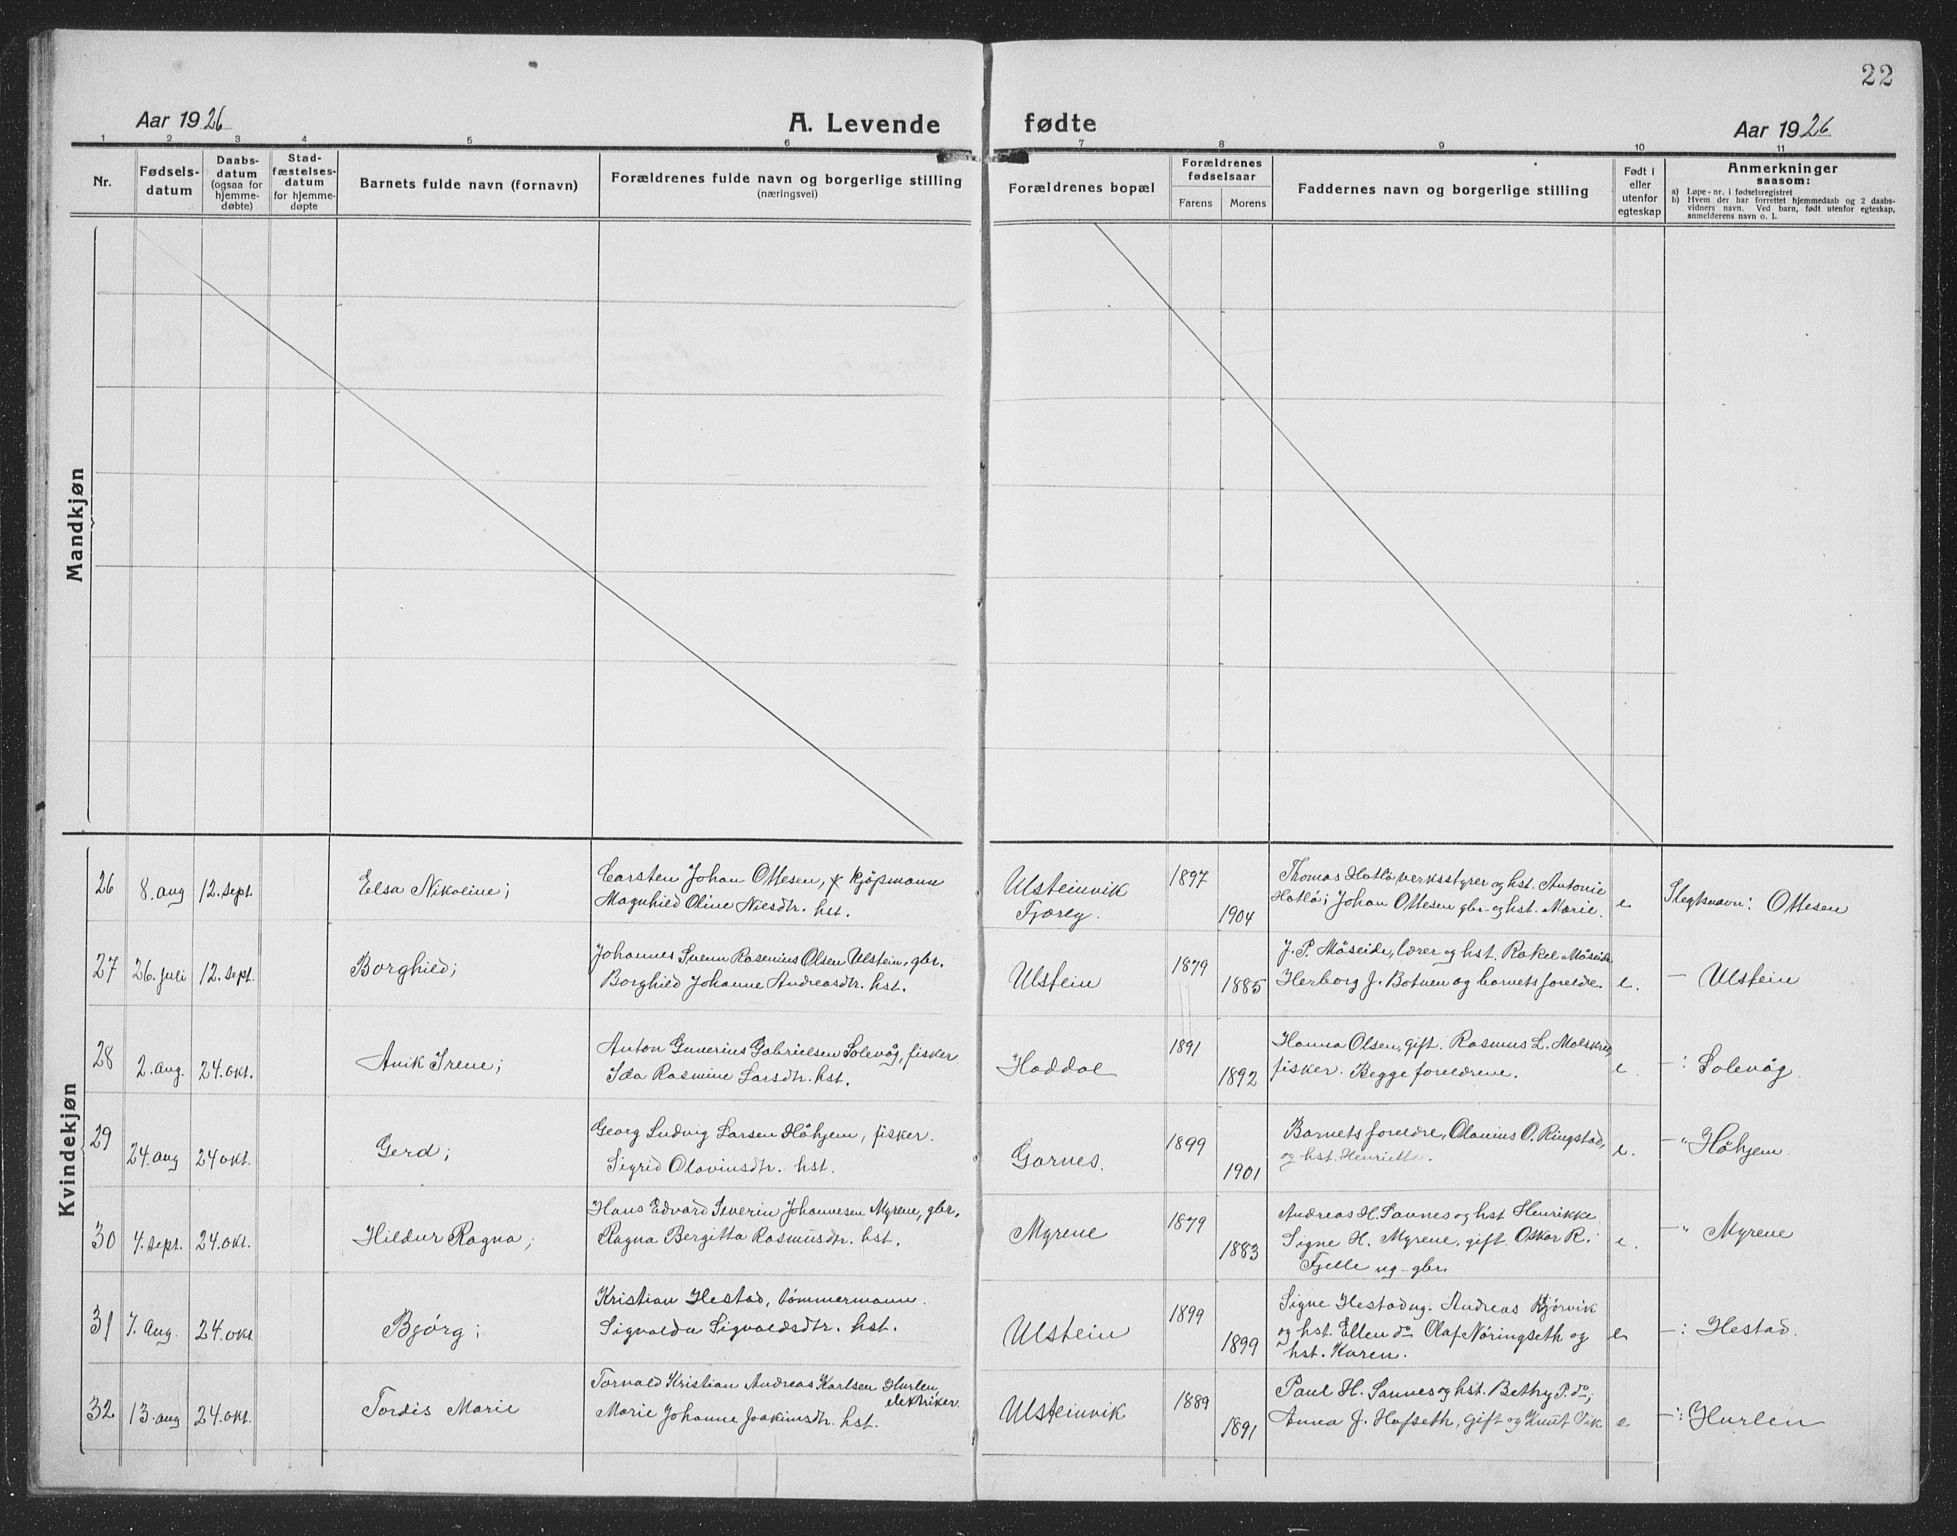 22
Aar 1926
A. Levende
fødte
Aar 1926
1 2 3 4 5 6 7 8 9 10 11
Nr.
Fødsels-
datum
Daabs-
datum
(ogsaa for
hjemme-
døbte)
Stad-
fæstelses-
datum
for hjemme-
døpte
Barnets fulde navn (fornavn)
Forældrenes fulde navn og borgerlige stilling
(næringsvei)
Forældrenes bopæl
Forældrenes
fødselsaar
Farens Morens
Faddernes navn og borgerlige stilling
Født i
eller
utenfor
egteskap
Anmerkninger
saasom:
a) Løpe-nr. i fødselsregistret
b) Hvem der har forrettet hjemmedaab og 2 daabs-
vidners navn. Ved barn, født utenfor egteskap,
anmelderens navn o. l.
Mandkjøn
Kvindekjøn
26 8. aug 12. sept. Elsa Nikoline;
Carsten Johan Ottesen, kjøpmann
Magnhild Oline Nilsdtr. hst.
Ulsteinvik
Fjærly.
1897
1904
Thomas Hatlø, verksstyrer og hst. Antonie
Hatlø; Johan Ottesen gbr. og hst. Marie.
e
Slegtsnavn: Ottesen
27 26. juli 12. sept. Borghild;
Johannes Svenn Rasenius Olsen Ulstein, gbr.
Borghild Johanne Andreasdtr. hst.
Ulstein
1879
1885
J. P. Måseide, lærer og hst. Rakel Måseide
Herborg J. Botnen og barnets foreldre.
e.
— Ulstein
28 2. aug. 24. okt. Anik Irene;
Anton Gunerius Gabrielsen Solevåg, fisker
Ida Rasmine Larsdtr. hst.
Haddal
1891
1892
Hanna Olsen, gift. Rasmus L. Molskred,
fisker. Begge foreldrene.
e
—: Solevåg.
29 24. aug 24 okt. Gerd;
Georg Ludvig Larsen Håhjem, fisker.
Sigrid Olaviusdtr. hst.
Garnes.
1899
1901
Barnets foreldre, Olavius O. Ringstad,
og hst. Henriette.
e.
—" Håhjem.
30 4. sept. 24. okt. Hildur Ragna;
Hans Edvard Severin Johannesen Myrene, gbr.
Ragna Bergitta Rasmusdtr. hst.
Myrene
1879
1883
Andreas H. Saunes og hst Henrikke
Signe H. Myrene, gift. Oskar R.
Fjelle ug - gbr.
e.
—" Myrene
31 7. aug. 24. okt Bjørg;
Kristian Hestad, tømmermann.
Sigvalda Sigvaldsdtr. hst.
Ulstein
1899
1899
Signe Hestad ug. Andreas Kjørvik
og hst. Ellen do Olaf Nøringseth og
hst. Karen.
e
—: Hestad.
32 13. aug 24. okt. Tordis Marie
Torvald Kristian Andreas Karlsen Hurlen,
elektriker.
Marie Johanne Joakimsdtr. hst.
Ulsteinvik
1889
1891
Paul H. Saunes og hst. Bethy P. do;
Anna J. Hofseth, gift og Knut Vik
e
—: Hurlen